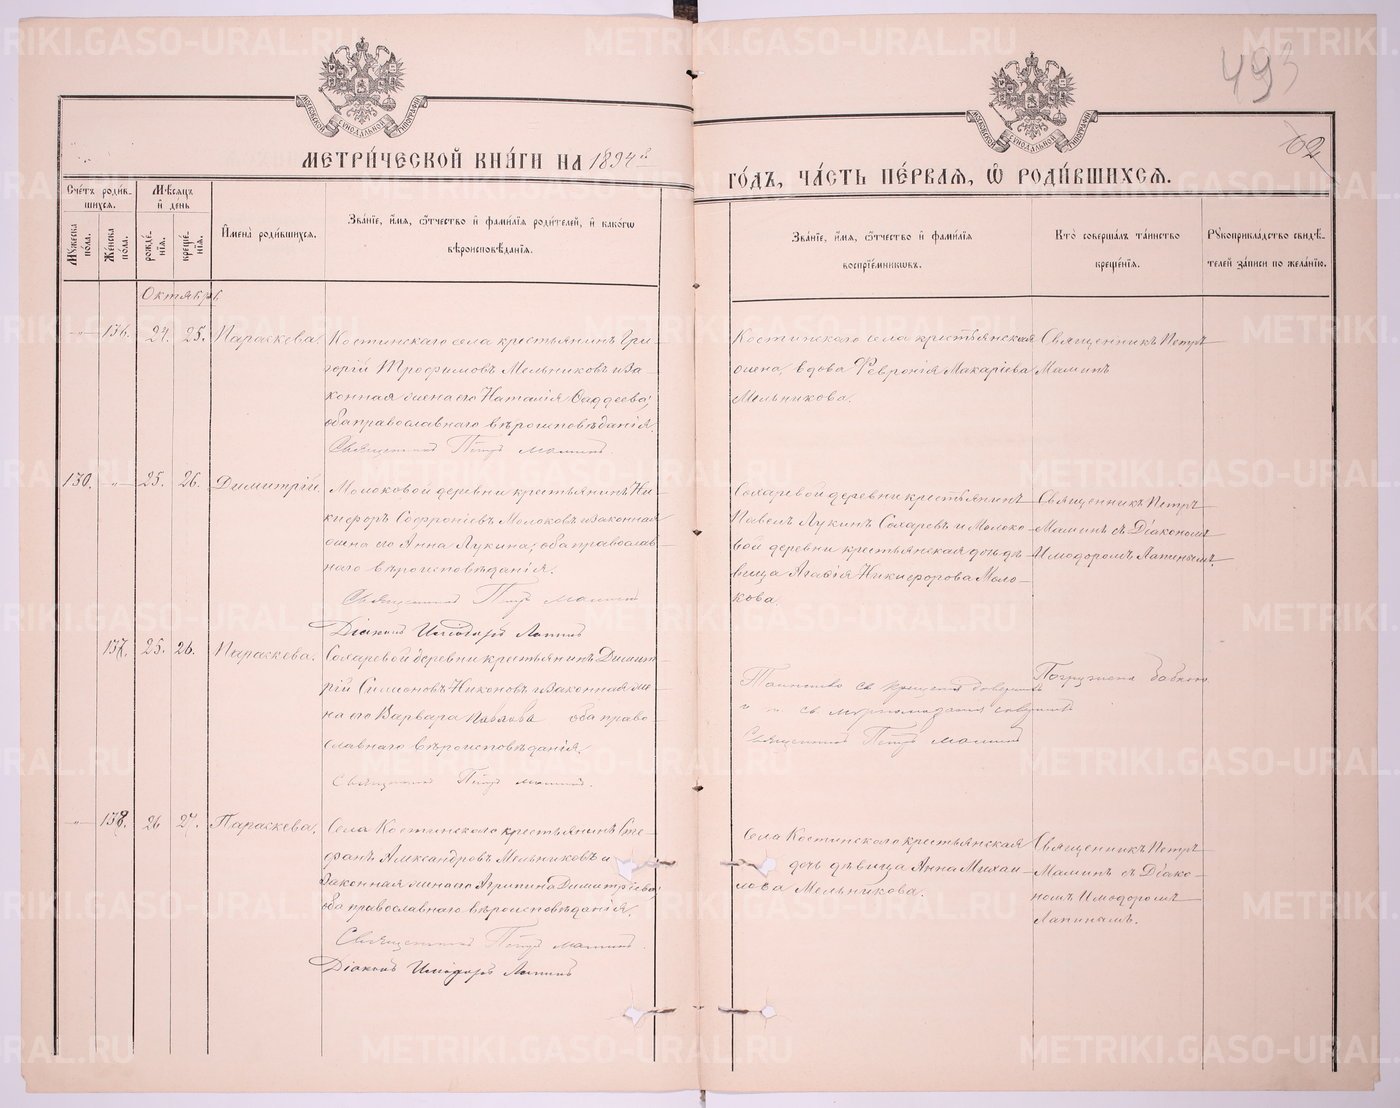 493
62
МОСКОВСКОЙ СѴНОДАЛЬНОЙ ТИПОГРАФІИ
МОСКОВСКОЙ СѴНОДАЛЬНОЙ ТИПОГРАФІИ
МЕТРИ́ЧЕСКОЙ КНИ́ГИ НА 1894й
ГО́ДЪ, ЧА́СТЬ ПЕ́РВАЯ, Ѡ҆ РОДИ́ВШИХСЯ.
Сче́тъ роди́в-
шихся.
Мѣ́сяцъ
и҆ день
Мꙋ́жеска по́ла.
Же́нска по́ла.
рожде́-нїя.
креще́-нїя.
И҆мена̀ роди́вшихся.
Зва́нїе, и҆́мя, ѻ҆́тчество и҆ фами́лїя роди́телей, и҆ како́гѡ
вѣроисповѣ́данїя.
Зва́нїе, и҆́мя, ѻ҆́тчество и҆ фами́лїя
воспрїе́мниковъ.
Кто̀ соверша́лъ та́инство
креще́нїя.
Рꙋкоприкла́дство свидѣ́-
телей за́писи по жела́нїю.
Октябрь.
-"- 136. 24. 25. Параскева.
Костинскаго села крестьянинъ Гри-
горій Трофимовъ Мельниковъ и за-
конная жена его Наталія Фаддеева;
оба православнаго вѣроисповѣданія.
Священникъ Петръ Маминъ.
Костинскаго села крестьянская
жена, вдова Февронія Макаріева
Мельникова.
Священникъ Петръ
Маминъ
130. -"- 25. 26. Димитрій
Молоковой деревни крестьянинъ Ни-
кифоръ Софроніевъ Молоковъ и законная
жена его Анна Лукина; оба православ-
наго вѣроисповѣданія.
Священникъ Петръ Маминъ
Діаконъ Илиодоръ Лапинъ
Сохаревой деревни крестьянинъ
Павелъ Лукинъ Сохаревъ и Молоко-
вой деревни крестьянская дочь дѣ-
вица Агафія Никифорова Моло-
кова.
Священникъ Петръ
Маминъ съ Діакономъ
Илиодоромъ Лапинымъ.
137. 25. 26. Параскева.
Сохаревой деревни крестьянинъ Димит-
рій Симеоновъ Никоновъ и законная же-
на его Варвара Павлова оба право-
славнаго вѣроисповѣданія.
Священникъ Петръ Маминъ.
Таинство св. крещенія довершилъ
и св. мѵропомазанія совершилъ
Священникъ Петръ Маминъ
Погружена бабкою
-"- 138. 26 27. Параскева.
Села Костинскаго крестьянинъ Сте-
фанъ Александровъ Мельниковъ и
законная жена его Агрипина Димитріева;
оба православнаго вѣроисповѣданія.
Священникъ Петръ Маминъ.
Діаконъ Илиодоръ Лапинъ
Села Костинскаго крестьянская
дочь дѣвица Анна Михаи-
лова Мельникова.
Священникъ Петръ
Маминъ съ Діако-
номъ Илиодоромъ
Лапинымъ.
METRIKI.GASO-URAL.RU